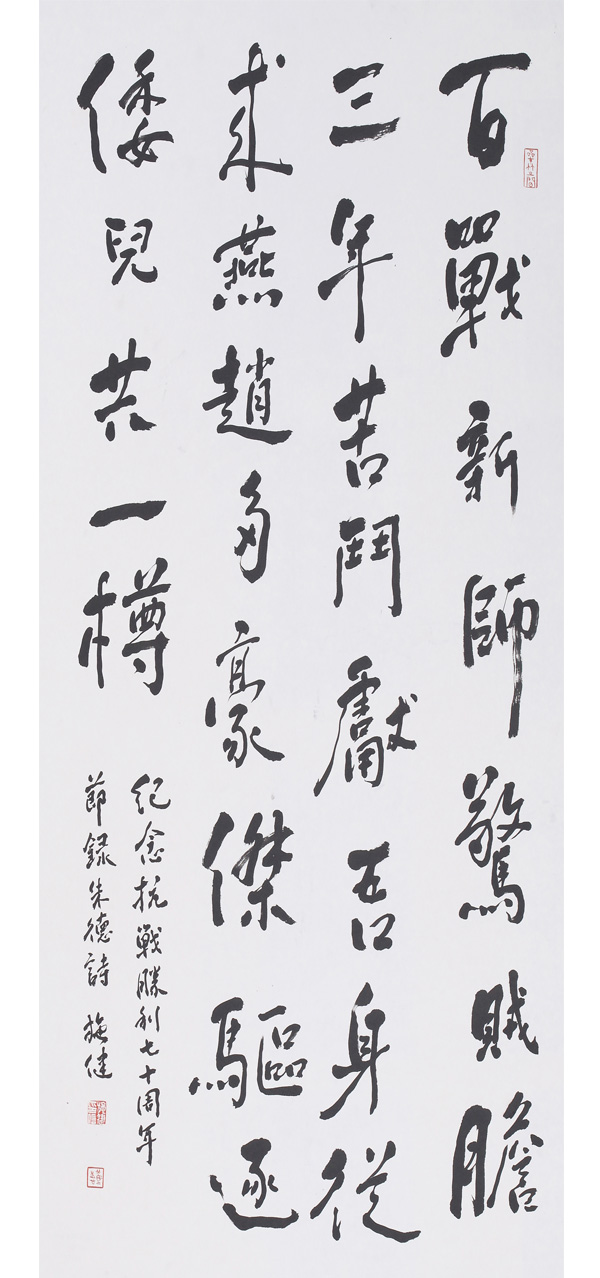 百戰新師驚賊膽
三年苦鬥獻吾身從
來燕趙多豪傑驅逐
倭兒共一樽
紀念抗戰勝利七十周年
節錄朱德詩 施健